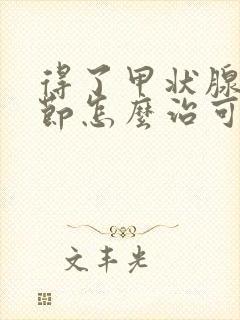 得了甲状腺
节怎麽治可
文丰光